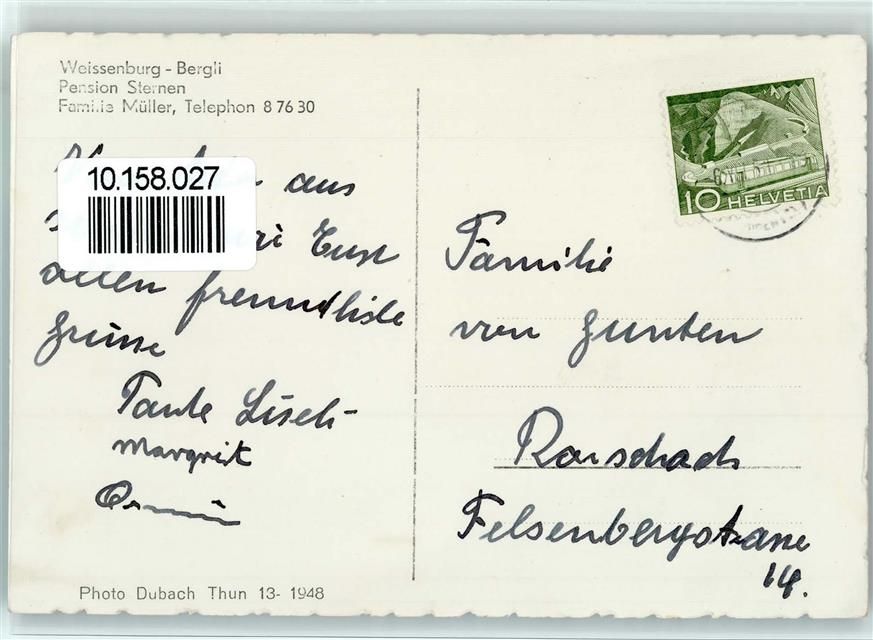 Weissenburg - Bergli
Pension Sternen
Familie Müller, Telephon 8 76 30
10.158.027
aus
Euch
allen freundliche
Grüsse
Tante Liseli-
Margrit
10 HELVETIA
Familie
von Gunten
Rorschach
Felsenbergstrasse
14.
Photo Dubach Thun 13- 1948